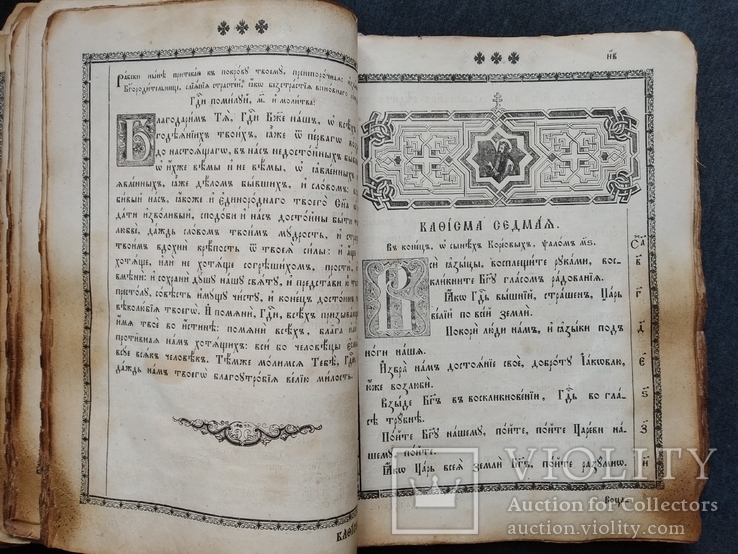 Рабски нынѣ притекая къ покрову твоему, прибѣгающаго
Бг҃ородительнице, страстїй,
Гдⷭ҇и помилꙋй, м҃. и молитва:
Благодаримъ Тѧ̀, Гдⷭ҇и Бж҃е нашъ, ѡ всѣхъ
годѣѧнїихъ Твоихъ, ꙗже ѿ перваго
до настоѧщагѡ, въ насъ недостойныхъ
ѡ ихже вѣмы и не вѣмы, ѡ ꙗвленныхъ
ꙗвленныхъ, ꙗже дѣломъ бывшихъ, и словомъ:
бивый насъ, ꙗкоже и Единороднаго твоего Сн҃а
дати изволивый, сподоби и насъ достойны быти
любве, даждь словомъ твоимъ мꙋдрость, и
твоимъ вдохни крѣпость ѿ твоеѧ силы: и аще
хотѧще, или не хотѧще согрѣшихомъ, прости,
вмѣни: и сохрани дꙋшꙋ нашꙋ свѧтꙋ, и представи ю
престолꙋ, совѣсть имꙋщꙋ чистꙋ, и конецъ достоинъ
вѣколюбїѧ твоегѡ. И помѧни, Гдⷭ҇и, всѣхъ призыва
имѧ твое во истинѣ: помѧни всѣхъ, блага или
противнаѧ намъ хотѧщихъ: вси бо человѣцы есмы
вꙋе всѧкъ человѣкъ. Тѣмже молимсѧ Тебѣ, Гдⷭ҇и,
даждь намъ твоегѡ благоꙋтробїѧ велїю милость.
н҃в
КАѲІСМА СЕДМАѦ.
Въ конецъ, ѡ сынѣхъ Кореовыхъ, ѱаломъ м҃ѕ.
Вси ꙗзыцы, восплещите рꙋками, вос
кликните Бг҃ꙋ гласомъ радованїѧ. в҃
Ꙗкѡ Гдⷭ҇ь вышнїй, страшенъ, Царь г҃
велїй по всей земли.
Покори люди намъ, и ꙗзыки подъ д҃
ноги нашѧ.
Избра намъ достоѧнїе свое, добротꙋ Їакѡвлю, є҃
юже возлюби.
Взыде Бг҃ъ въ воскликновенїи, Гдⷭ҇ь во гла ѕ҃
сѣ трꙋбнѣ.
Пойте Бг҃ꙋ нашемꙋ, пойте, пойте Цареви на з҃
шемꙋ, пойте.
Ꙗкѡ Царь всеѧ земли Бг҃ъ, пойте разꙋмнѡ. и҃
Воца
VIOLITY
Auction for Collectors
auction.violity.com